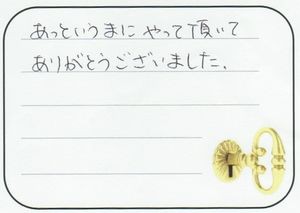 あっというまに やって頂いて
ありがとうございました。